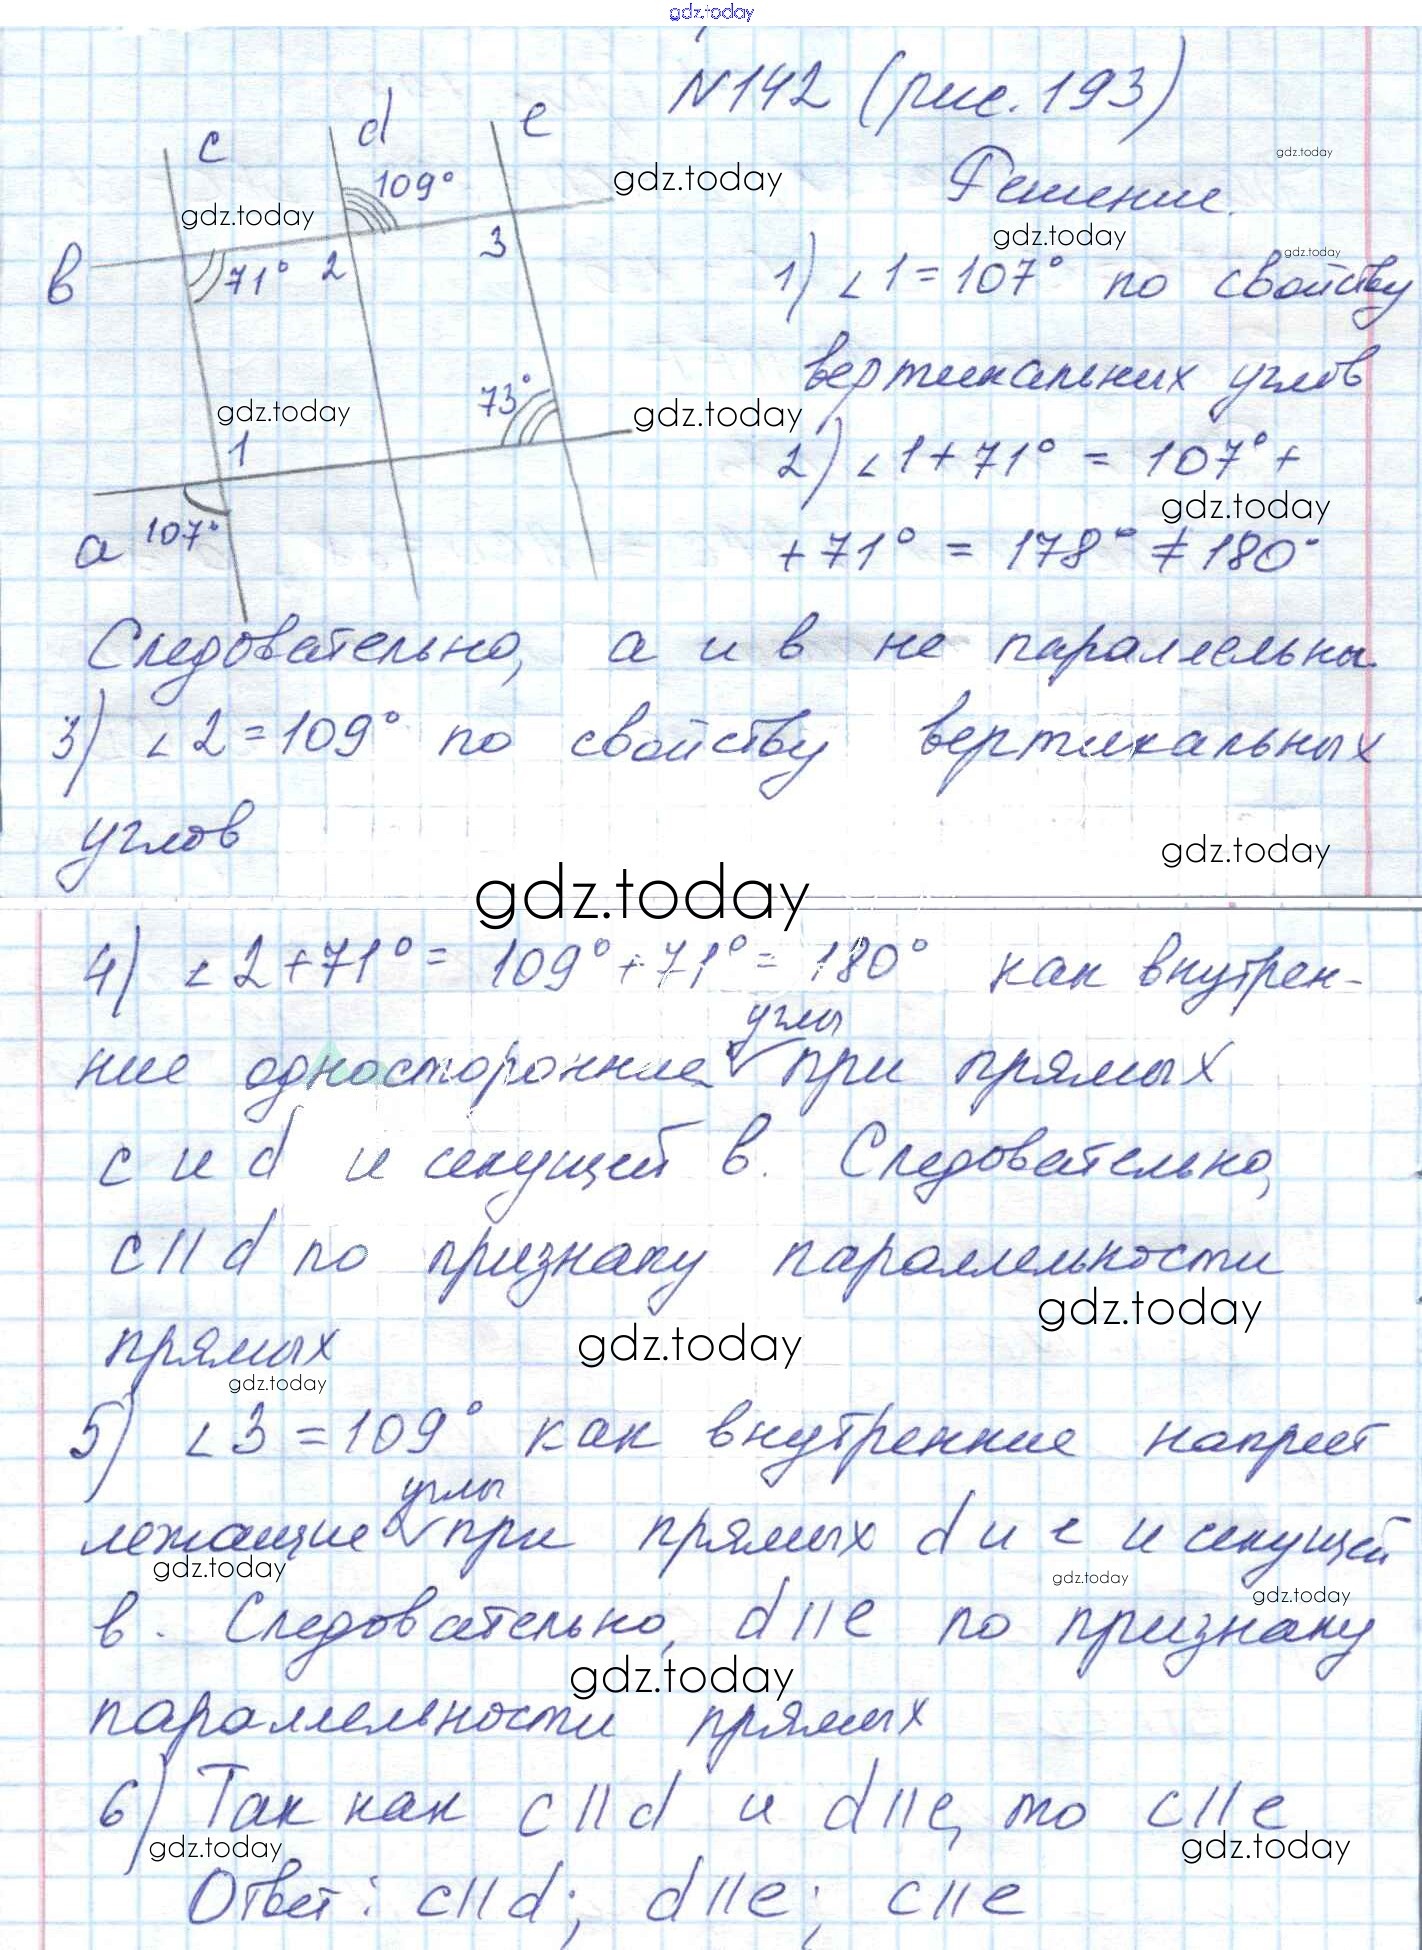 gdz.today
№142 (рис. 193)
c
d
e
109°
gdz.today
gdz.today
gdz.today
Решение.
gdz.today
gdz.today
в
71°
2
3
1) ∠1 = 107° по свойству
вертикальных углов
73°
gdz.today
gdz.today
1
2) ∠1 + 71° = 107° +
gdz.today
а
107°
+ 71° = 178° ≠ 180°
Следовательно, а и в не параллельны.
3) ∠2 = 109° по свойству вертикальных
углов
gdz.today
gdz.today
4) ∠2 + 71° = 109° + 71° = 180° как внутрен-
углы
ние односторонние при прямых
c и d и секущей в. Следовательно,
c || d по признаку параллельности
gdz.today
прямых
gdz.today
gdz.today
5) ∠3 = 109° как внутренние накрест
углы
лежащие при прямых d и e и секущей
gdz.today
gdz.today
gdz.today
в. Следовательно, d || e по признаку
gdz.today
параллельности прямых
6) Так как c || d и d || e, то c || e
gdz.today
gdz.today
Ответ: c || d; d || e; c || e